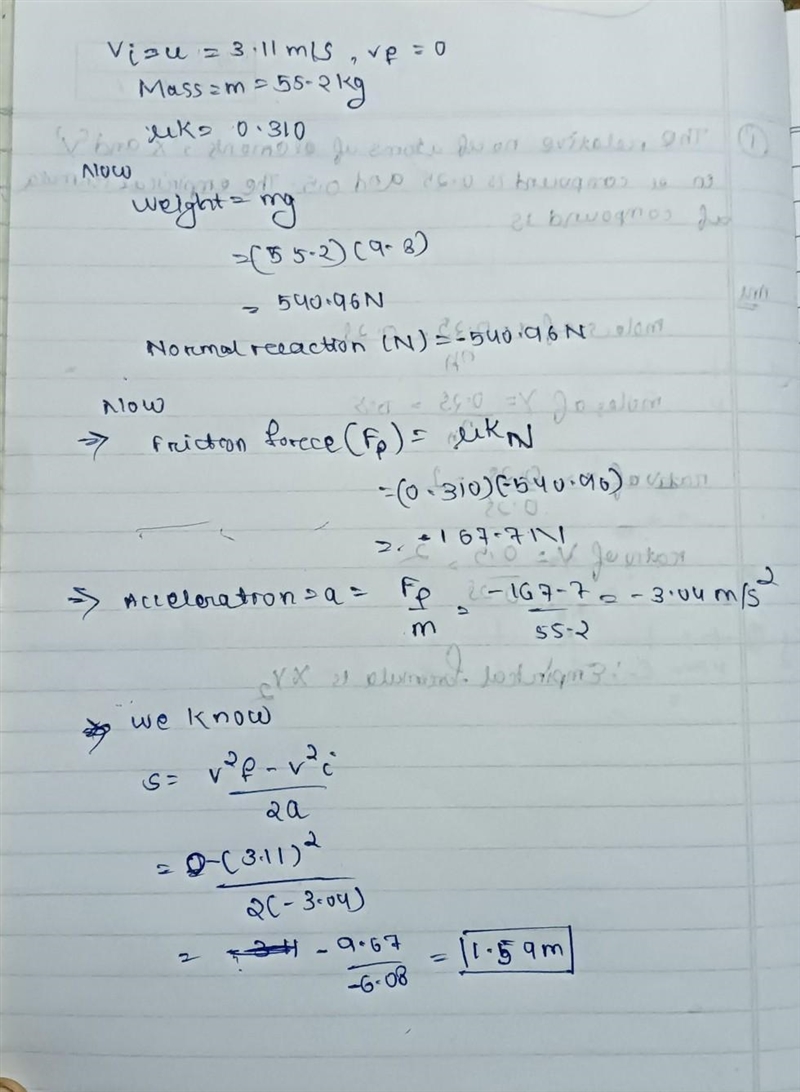 Vi=u = 3.11 m/s, vf = 0
Mass=m = 55.2 kg
μk= 0.310
Now
weight = mg
=(55.2)(9.8)
= 540.96N
Normal recaction (N) = -540.96N
Now
⇒ Friction forece (Ff) = μkN
=(0.310)(-540.96)
= -167.7N
⇒ Acceleration=a = Ff/m = -167.7/55.2 = -3.04 m/s²
⇒ we know
s= v²f - v²i / 2a
= 0-(3.11)² / 2(-3.04)
= -9.67 / -6.08 = 1.59m